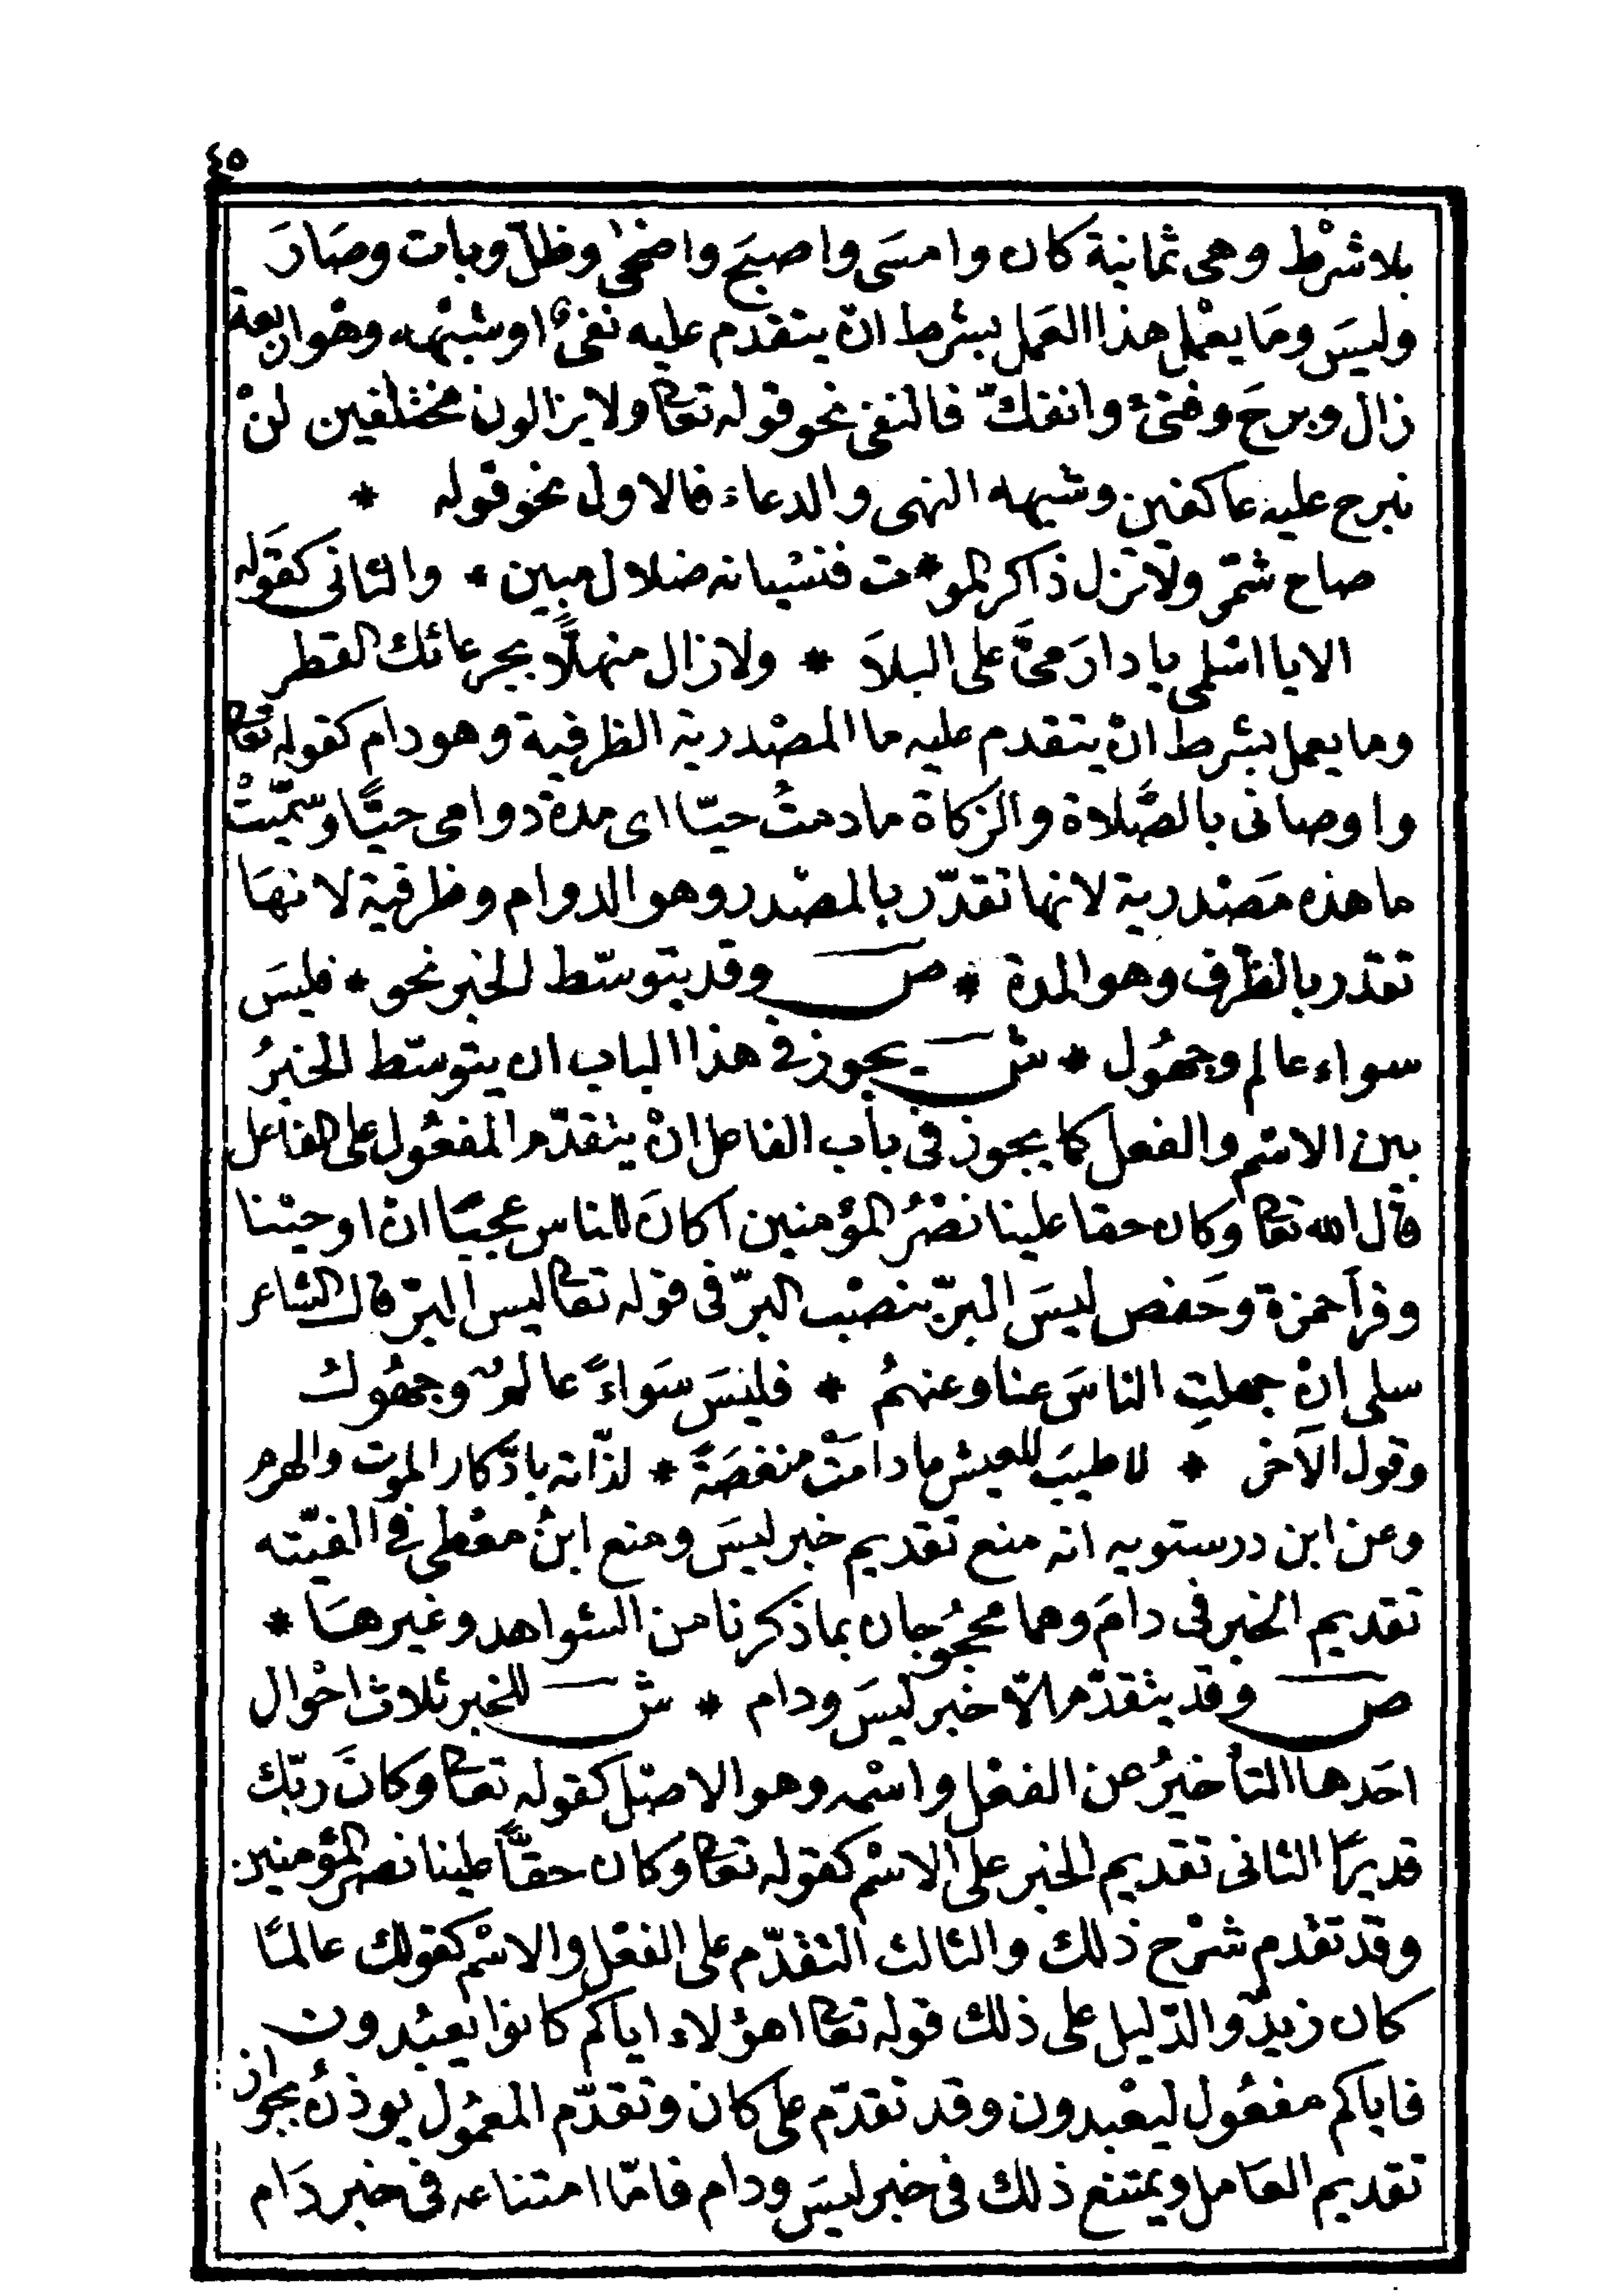 ٤٥
بلا شرْط وهى ثمانية كان وامسَى واصبَح واضحٰى وظلّ وبات وصَارَ
وليسَ ومَا يعْمل هذا العَمل بشرط انْ يتقدم عليه نفىٌ او شبْهه وهْو اربعة
زال وبرحَ وفتئ وانفكّ فالنفى نحو قوله تعا ولا يزالون مختلفين لنْ
نبرح عليه عاكفين وشبهه النهى والدعاء فالاول نحو قوله *
صاح شمّر ولا تزل ذاكر المو * ت فنسيانه ضلال مبين * والثانى كقوله
الا يا اسْلمى يا دارَ مىَّ على البلاَ * ولا زال منهلًّا بجرعائك القطر
وما يعمل بشرط انْ يتقدم عليه ما المصْدرية الظرفية وهو دام كقوله تعا
واوصانى بالصَّلاة والزكاة ما دمتُ حيّا اى مدة دوامى حيًّا وسمّيتْ
ما هذه مَصْدرية لانها تقدّر بالمصْدر وهو الدوام وظرفية لانهَا
تقدر بالظرف وهو المدة * ص وقد يتوسّط الخبر نحو * فليسَ
سواء عالم وجهُول * ش يجوز فى هذا الباب ان يتوسّط الخبرُ
بين الاسْم والفعل كما يجوز فى باب الفاعل انْ يتقدّم المفعُول على الفاعل
قال الله تعا وكان حقا علينا نصْرُ المؤمنين اكانَ للناس عجبًا انْ اوحيْنا
وقرأ حمزة وحَفص ليسَ البرّ بنصْب البرّ فى قوله تعا ليس البرّ قال الشاعر
سلى انْ جهلتِ الناسَ عنا وعنهمُ * فليْسَ سَواءً عالمٌ وجهُولُ
وقول الآخر * لا طيبَ للعيش ما دامَتْ منغصَةً * لذّاته بادّكار الموت والهرم
وعن ابن درستويه انه منع تقديم خبر ليسَ ومنع ابنُ معْطى فى الفيّته
تقديم الخبر فى دامَ وهما محجُوجان بما ذكرنا من الشواهد وغيرهَا *
ص وقد يتقدّم الّا خبر ليسَ ودام * ش للخبر ثلاث احْوال
احَدها التأخيرُ عن الفعْل واسْمه وهو الاصْل كقوله تعا وَكانَ ربّك
قديرًا الثانى تقديم الخبر على الاسْم كقوله تعا وَكان حقًّا علينا نصر المؤمنين
وقدْ تقدم شرْح ذلك والثالث التقدّم على الفعْل والاسْم كقولك عالمًا
كان زيدٌ والدّليل على ذلك قوله تعا اهؤلاء اياكم كانوا يعبُدون
فاياكم مفعُول ليعْبدون وقد تقدّم على كان وتقدّم المعمُول يوذنُ بجواز
تقديم العَامل ويمتنع ذلك فى خبر ليسَ ودام فامّا امتناعه فى خبر دَام